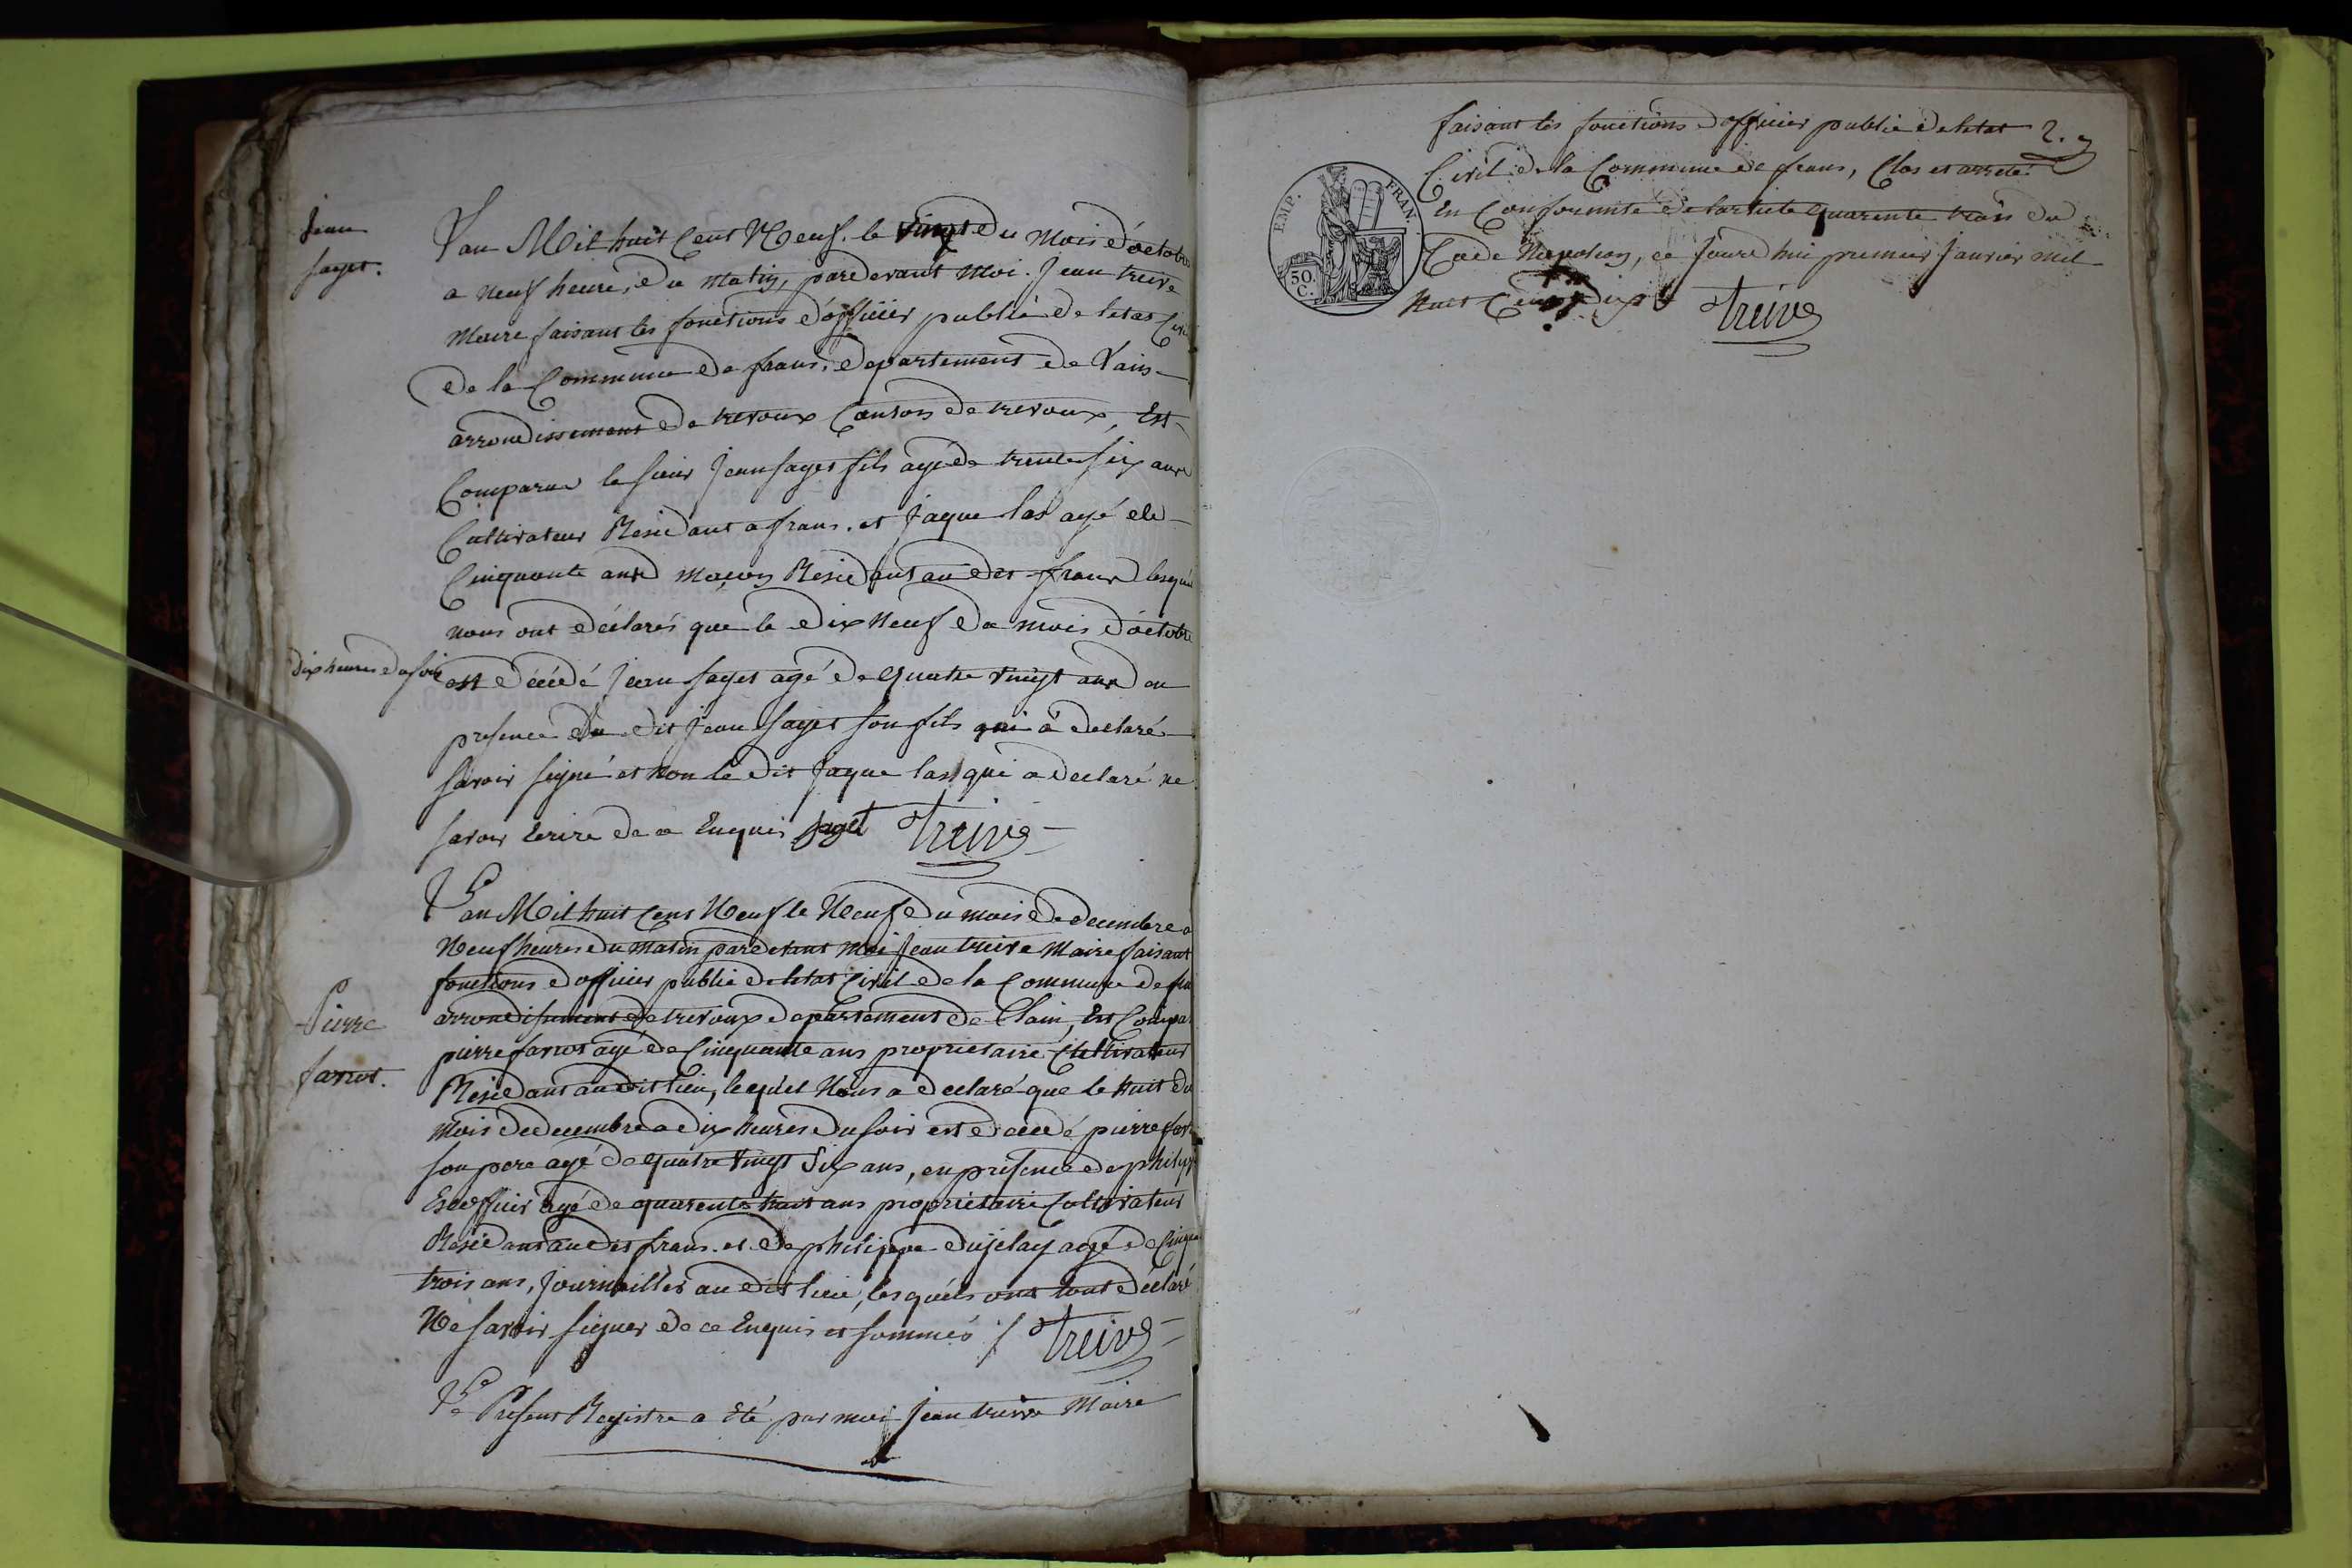 jean
saget.
L'an Mil huit Cent Neuf. le vingt du Mois d'octobre
a neuf heure, du matin, pardevant moi. Jean treive
Maire faisant les fonctions d'officier public de letat Civil
de la Commune de frans, departement de Lain
arrondissement de trevoux Canton de trevoux, Est
Comparue le sieur Jean saget fils agé de trente six ans
Cultivateur Residant a frans. et Jaque las agé de
Cinquante ans maçon Residant au dit frans lesquels
nous ont déclarés que le dix Neuf de mois d'octobre
dix heures du soir
est décédé Jean saget agé de quatre vingt ans en
presence du dit Jean saget son fils qui a declaré
savoir signé et non le dit Jaque las qui a declaré ne
savoir Ecrire de ce Enquis saget Treive
Pierre
farrot.
L'an Mil huit Cent Neuf le Neuf du mois de decembre a
Neuf heures du matin pardevant moi Jean treive Maire faisant
fonctions d'officier public de letat Civil de la Commune de
arrondisement de trevoux departement de Lain, Est
pierre farrot agé de Cinquante ans proprietaire Cultivateur
Residant au dit lieu, lequel Nous a declaré que le huit du
mois de decembre a dix heures du soir est décédé pierre
son pere agé de quatre vingt Six ans, en présence de
Escoffier agé de quarente huit ans proprietaire Cultivateur
Residant au dit frans. et de philippe agé de
trois ans, Journailler au dit lieu, lesquels ont tout déclaré
Ne savoir signer de ce Enquis et sommés Treive
Le Présent Registre a Eté par moi Jean treive Maire
faisant les fonctions d'officier public de letat
Civil de la Commune de frans, Clos et arrêté.
En Conformité de larticle quarente trois du
Code Napoleon, ce jourd'hui premier Janvier mil
huit Cent dix Treive
EMP. FRAN.
50
C.